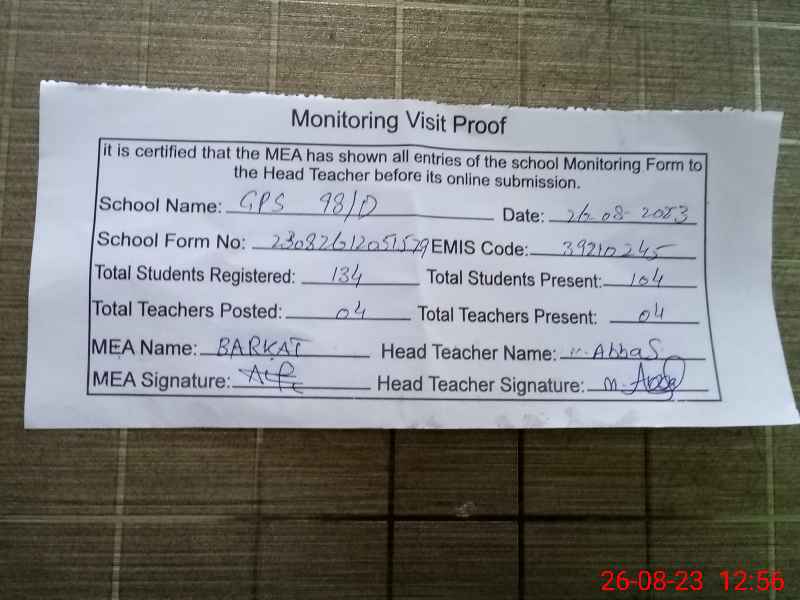 Monitoring Visit Proof
it is certified that the MEA has shown all entries of the school Monitoring Form to
the Head Teacher before its online submission.
School Name: GPS 98/D Date: 26-08-2023
School Form No: 23082612051579 EMIS Code: 39210245
Total Students Registered: 134 Total Students Present: 104
Total Teachers Posted: 04 Total Teachers Present: 04
MEA Name: BARKAT Head Teacher Name: M. Abbas
MEA Signature: Head Teacher Signature: M.
26-08-23 12:56